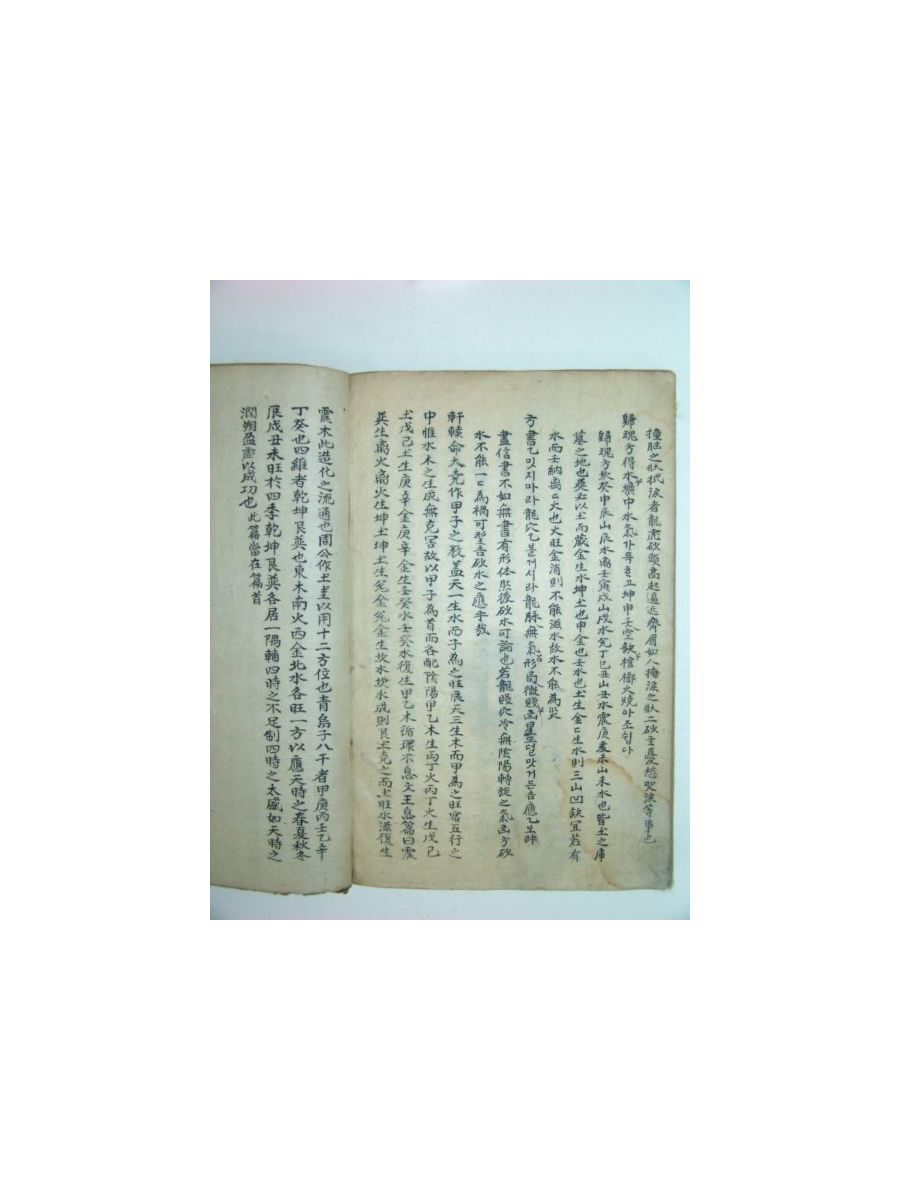 撞胸之狀拭淚者龍虎砂頭高起逼近齊眉如人掩淚之狀二砂主憂愁哭淚等事也
歸魂方得水壙中水氣가득ᄒᆞ고坤申壬空缺棺槨火燒아조쉽다
歸魂方坎癸申辰山辰水离壬寅戌山戌水兌丁巳丑山丑水震庚亥未山未水也皆土之庫
墓之地也巽以土而藏金生水坤土也申金也壬水也土生金金生水則三山凹缺宜若有
水而壬納离离火也火旺金消則不能滋水故水不能為災
方書乙밋지마라龍穴乙불계시라龍脉無氣形局微賤
盡信書不如無書有形体然後砂水可論也若龍賤穴冷無陰陽轉旋之氣凶方砂
水不能一一為禍可望吉砂水之應乎哉
軒轅命大撓作甲子之數盖天一生水而子為之旺辰天三生木而甲為之旺宿五行之
中惟水木之生成無克害故以甲子為首而各配陰陽甲乙木生丙丁火丙丁火生戊己
土戊己土生庚辛金庚辛金生壬癸水壬癸水復生甲乙木循環不息文王息篇曰震
巽生离火离火生坤土坤土生兌金兌金生坎水坎水成則艮土克之而土旺水滋復生
震木此造化之流通也周公作土圭以用十二方位也青烏子八干者甲庚丙壬乙辛
丁癸也四維者乾坤艮巽也東木南火西金北水各旺一方以應天時之春夏秋冬
辰戌丑未旺於四季乾坤艮巽各居一隅輔四時之不足制四時之太盛如天時之
潤朔盈虛以成功也 此篇當在篇首